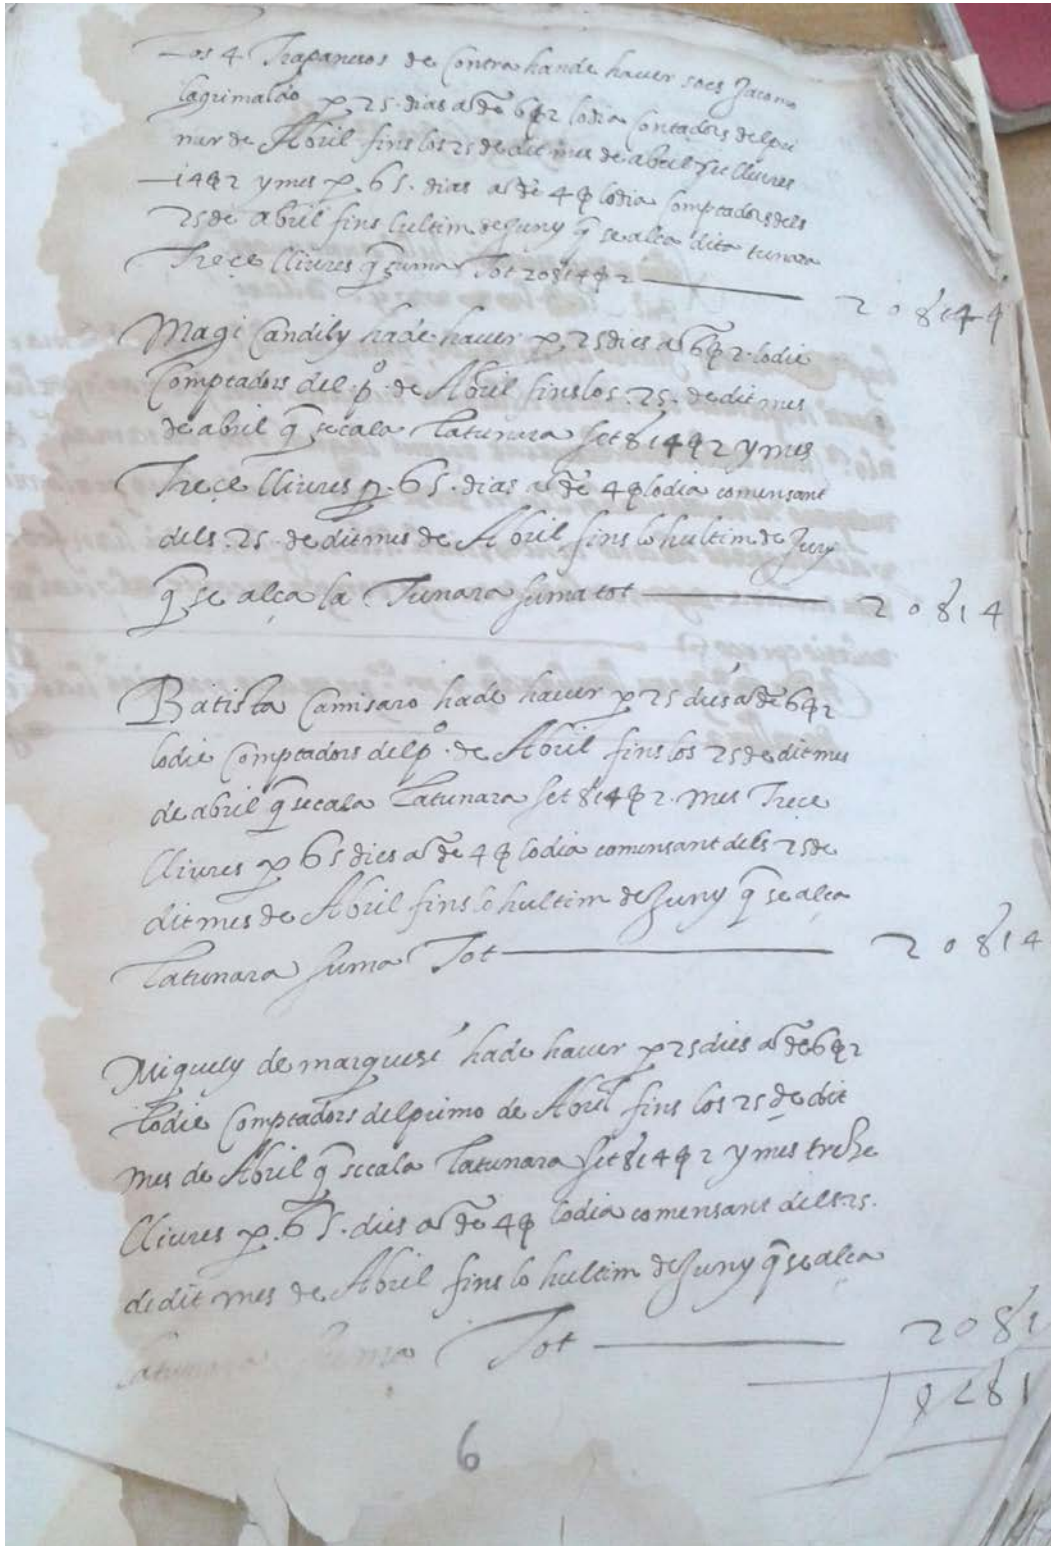 Los 4 Trapaneros de Contra hande hauer soes Jacomo
lagrimaldo p 25 dias a de 6ș2 lodia Contadors del pri
mer de Abril fins los 25 de dit mes de abril set lliures
14ș2 y mes p. 65. dias a de 4ș lodia Comptadors dels
25 de abril fins lultim de Juny q se alça dita tunara
Treçe lliures q suma Tot 20 8 14ș2 — 20 8 14 ș
Magi Candily hade hauer p. 25 dies a 6ș2 lodie
Comptadors del pº de Abril fins los 25. de dit mes
de abril q secala Latunara set 8 14ș2 y mes
Treçe lliures p. 65. dias a de 4ș lodia comensant
dels 25. de dit mes de Abril fins lo hultim de Juny
q se alça la Tunara suma tot — 20 8 14
Batista Camisaro hade hauer p 25 dies a de 6ș2
lodie Comptadors del pº de Abril fins los 25 de dit mes
de abril q secala Latunara set 8 14ș2. mes Treçe
lliures p 65 dies a de 4ș lodia comensant dels 25 de
dit mes de Abril fins lo hultim de Juny q se alça
Latunara suma Tot — 20 8 14
Miquely de marquesé hade hauer p 25 dies a de 6ș2
Lodie Comptadors del primo de Abril fins los 25 de dit
mes de Abril q secala Latunara set 8 14ș2 y mes treze
lliures p. 65. dies a de 4ș lodia comensant dels 25.
de dit mes de Abril fins lo hultim de Juny q se alça
Latunara suma Tot — 20 8 1
8 2 8 1
6